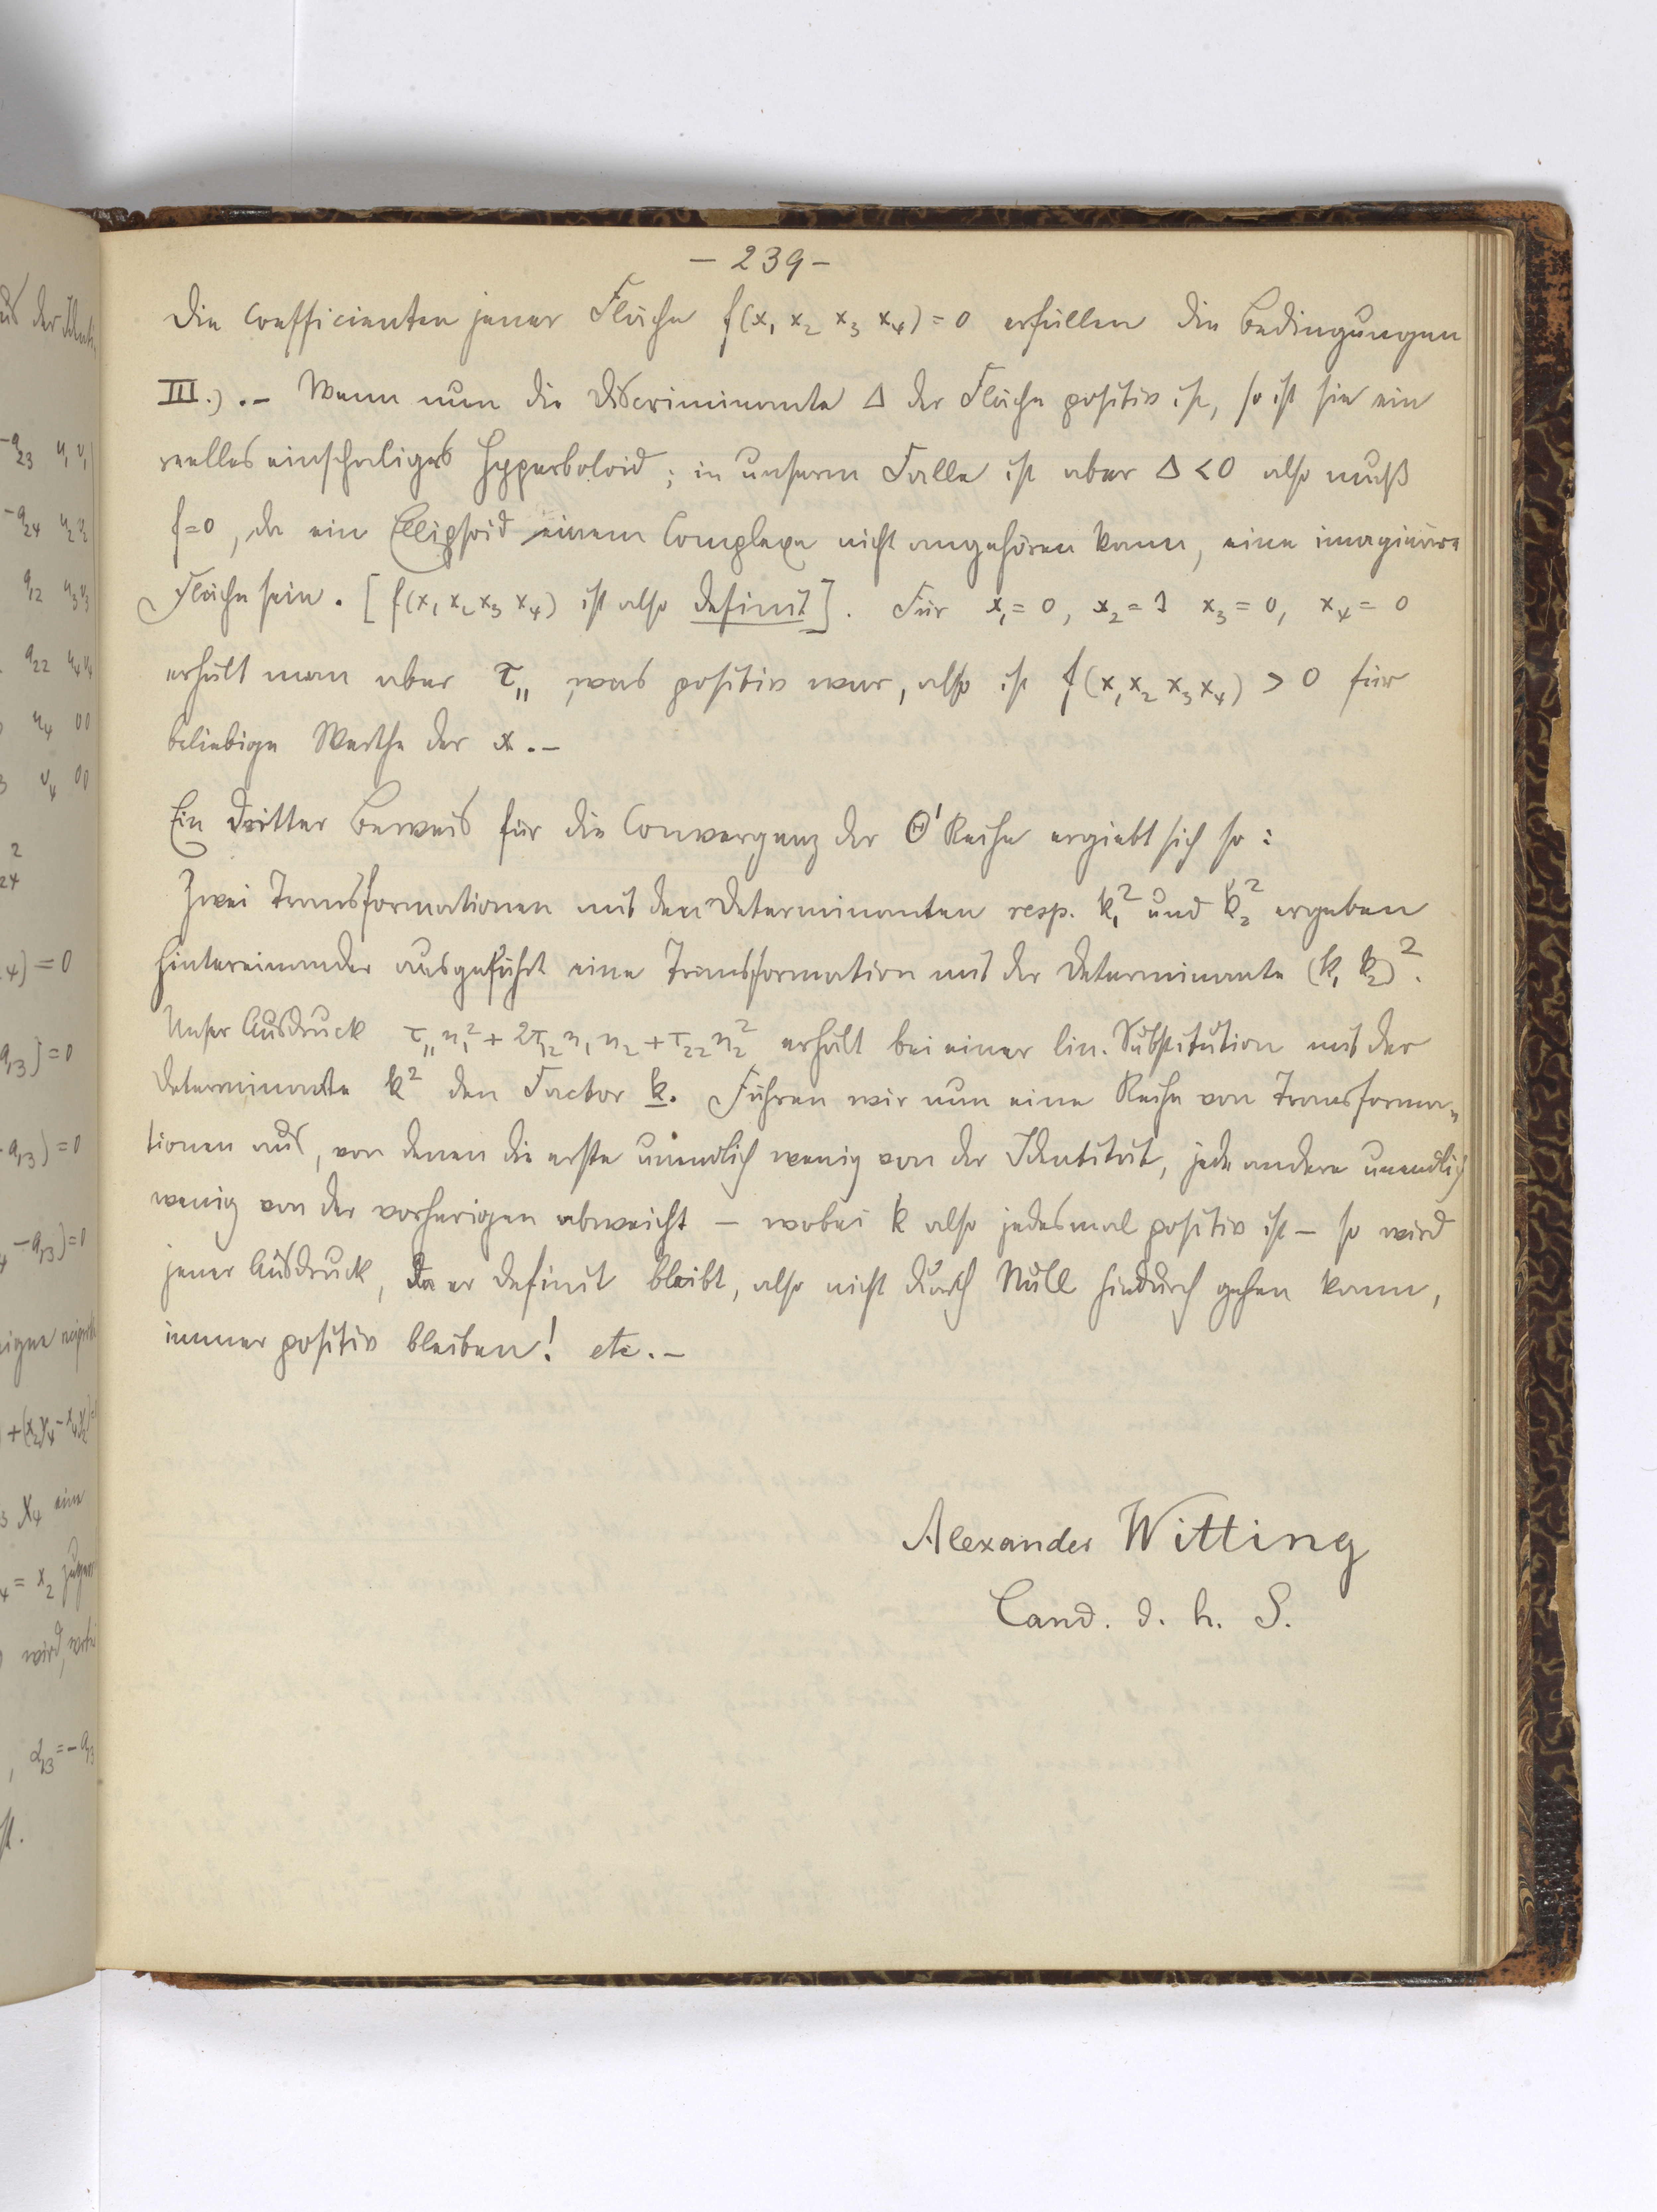 – 239 –
Die Coefficienten jener Fläche f(x₁ x₂ x₃ x₄) = 0 erfüllen die Bedingungen
III.) .– Wenn nun die Discriminante Δ der Fläche positiv ist, so ist sie ein
reelles einschaliges Hyperboloid; in unserm Falle ist aber Δ < 0 also muß
f=0, da ein Ellipsoid einem Complexe nicht angehören kann, eine imaginäre
Fläche sein. [f(x₁ x₂ x₃ x₄) ist also definit]. Für x₁ = 0, x₂ = 1 x₃ = 0, x₄ = 0
erhält man aber τ₁₁, was positiv war, also ist f(x₁ x₂ x₃ x₄) > 0 für
beliebige Werthe der x.–
Ein dritter Beweis für die Convergenz der Θ' Reihe ergiebt sich so:
Zwei Transformationen mit den Determinanten resp. k₁² und k₂² ergeben
hintereinander ausgeführt eine Transformation mit der Determinante (k₁ k₂)².
Unser Ausdruck τ₁₁n₁² + 2τ₁₂n₁n₂ + τ₂₂n₂² erhält bei einer lin. Substitution mit der
Determinante k² den Factor k. Führen wir nun eine Reihe von Transforma-
tionen aus, von denen die erste unendlich wenig von der Identität, jede andere unendlich
wenig von der vorherigen abweicht – wobei k also jedesmal positiv ist – so wird
jener Ausdruck, da er definit bleibt, also nicht durch Null hindurch gehen kann,
immer positiv bleiben! etc.–
Alexander Witting
Cand. d. h. S.